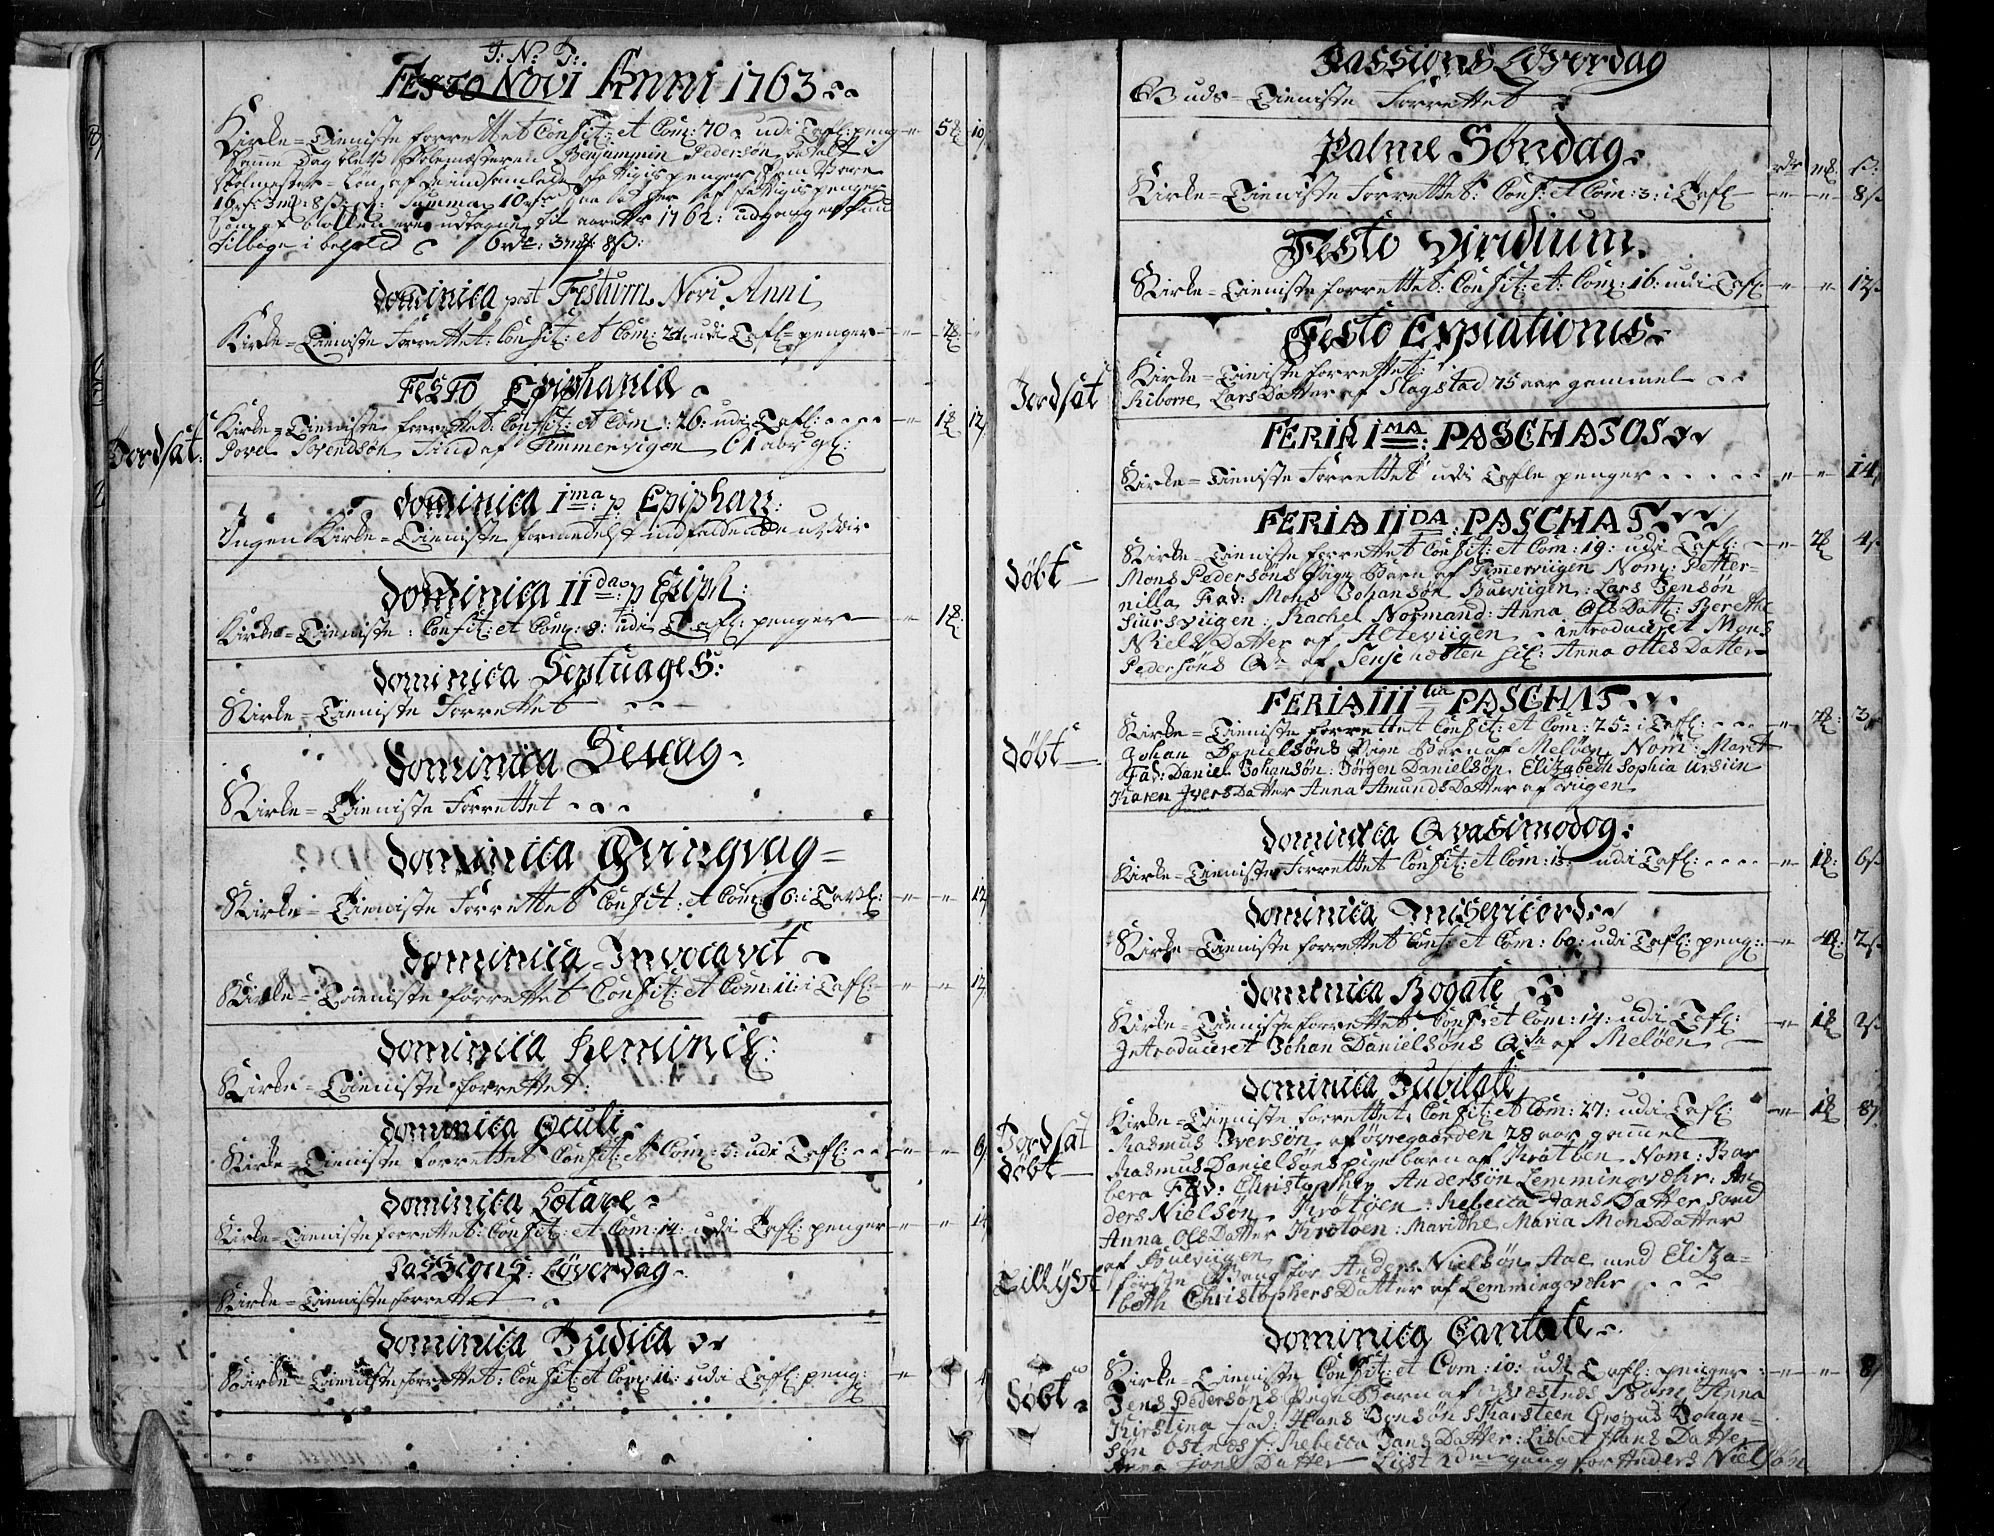 J: N: J:
Festo Novi Anni 1763
Kirke=Tieniste forrettet Confit: et Com: 70 udi Tafl: peng " 5 10
Samme Dag blev Skolemesteren Benjammin Pedersøn betalt
Skolmester=Løn af de indsamlede fattigis penger som vare
16 rdr: 3 mk: 8 s: Summa 10 rdr
1762:
tilbage i behold 6 rdr: 3 mk: 8 s:
Dominica post Festum Novi Anni
Kirke=Tieniste Forrettet: Confit: et Com: 24 udi Tafl=penger
Festo Epiphaniæ
Jordsat: Kirke=Tieniste forrettet: Confit: et Com: 26: udi Tafl: " 1 12
Povel Svendsøn Finmervigen
Dominica I ma: p Epiphan:
Ingen Kirke=Tieniste formedelst indfaldende uveir
Dominica II da: p Epiph:
Kirke=Tieniste: Confit: et Com: 8: udi Tafl: penger " 1
Dominica Septuages:
Kirke=Tieniste Forrettet
Dominica Sexag
Kirke=Tieniste Forrettet
Dominica Qvinqvag=
Kirke=Tieniste Forrettet Confit: et Com: 6: i Tavl: " " 12
Dominica Invocavit
Kirke=Tieniste forrettet Confit: et Com: 11: i Tafl: " " 12
Dominica Reminis:
Kirke=Tieniste forrettet:
Dominica Oculi
Kirke=Tieniste forrettet Confit: et Com: 5: udi Tafl: " " 6
Dominica Lætare
Kirke=Tieniste forrettet: Confit: et Com: 14: udi Tafl: penger " " 14
Passions: Løverdag
Kirke=Tieniste forrettet
Dominica Judica
Kirke=Tieniste forrettet: Confit: et Com: 11: udi Tafl: peng:
Passions Løverdag
Guds=Tieniste Forrettet
Palme Søndag
rdr mk: s:
Kirke=Tieniste Forrettet: Conf: et Com: 3: i Tafl " " 8 s
Festo Viridium
Kirke=Tieniste forrettet: Confit: et: Com: 16: udi Tafl: " " 12 s
Festo Expiationis
Kirke=Tieniste forrettet:
Jordsat Lars Datter af Slagstad 75 aar gammel
FERIA I MA: PASCHATOS
Kirke=Tieniste Forrettet udi Tafle penger " " 14
FERIA II DA: PASCHAT
Kirke=Tieniste forrettet Confit: et Com: 19: udi Tafl: " 2 4 s
døbt Mons Pedersøns Pige Barn af Finnervigen Nom: Petter-
nilla Fad: Mons Johansøn Buevigen: Lars Jensøn
Rachel Normand: Anna Ols Datt: Berethe
Niels Datter af Altevigen introduceret Mons
Pedersøns Qde af Senje Anna Ottes Datter
FERIA III tia PASCHAT
Kirke=Tieniste forrettet Confit: et Com: 25: i Tafl: " 2 3
døbt Johan Danielsøns Pige Barn af Meløen Nom: Marit
Fad: Daniel Johansøn: Jørgen Danielsøn Elizabeth Sophia Ursiin
Karen Ivers Datter Anna Amunds Datter af Viigen
Dominica Qvasimodog:
Kirke=Tieniste Forrettet Confit: et Com: 13: udi Tafl: " 1 6 s
Dominica Misericord
Kirke=Tieniste forrettet Conf: et Com: 60: udi Tafl: peng: " 4 2 s
Dominica Rogate
Kirke=Tieniste forrettet Conf: et Com: 14: udi Tafl: " 1 2 s
Introduceret Johan Danielsøns Qde af Meløen
Dominica Jubilate
Kirke=Tieniste forrettet Confit: et Com: 27: udi Tafl: " 1 8
Jordsat Rasmus Iversøn af Øvregaarden 28 aar gammel
døbt Rasmus Danielsøns pige barn af Krøtøen Nom: Bar
bera Fad: Christopher Andersøn Lemmingvær: An
ders Nielsøn Krøtøen: Rebecca Hans Datter
Anna Ols Datter Krøtøen: Marithe Maria Mons Datter
af Buevigen
Tillyst første Gang for Anders Nielsøn Aae med Eliza-
beth Christophers Datter af Lemmingvær
Dominica Cantate
Kirke=Tieniste Confit: et Com: 10: udi Tafl: penger " " 8
døbt Jens Pedersøns Pige Barn af Nom: Anna
Kirstina Fad: Hans Jonsøn Johan-
søn Rebecca Jans Datter: Lisbet Hans Datter
Datter Lyst 2den gang for Anders Nielsøn